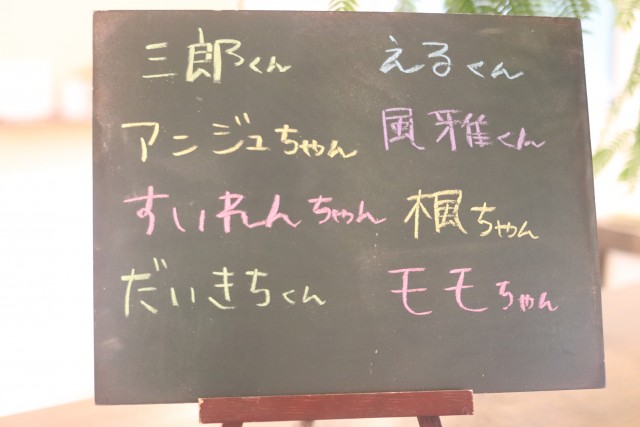 三郎くん えるくん
アンジュちゃん 風雅くん
すいれんちゃん 楓ちゃん
だいきちくん モモちゃん